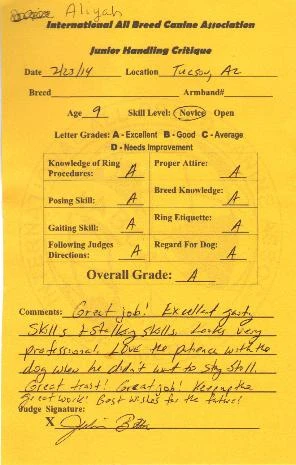 Aliyah
International All Breed Canine Association
Junior Handling Critique
Date 2/23/14 Location Tucson, AZ
Breed Armband#
Age 9 Skill Level: Novice Open
Letter Grades: A - Excellent B - Good C - Average
D - Needs Improvement
Knowledge of Ring Procedures: A Proper Attire: A
Posing Skill: A Breed Knowledge: A
Gaiting Skill: A Ring Etiquette: A
Following Judges Directions: A Regard For Dog: A
Overall Grade: A
Comments: Great job! Excellent gaiting
skills & skills. Looks very
professional. Love the patience with the
dog when he didn't want to stay still.
Great trust! Great job! Keep up the
great work! Best wishes for the future!
Judge Signature:
X